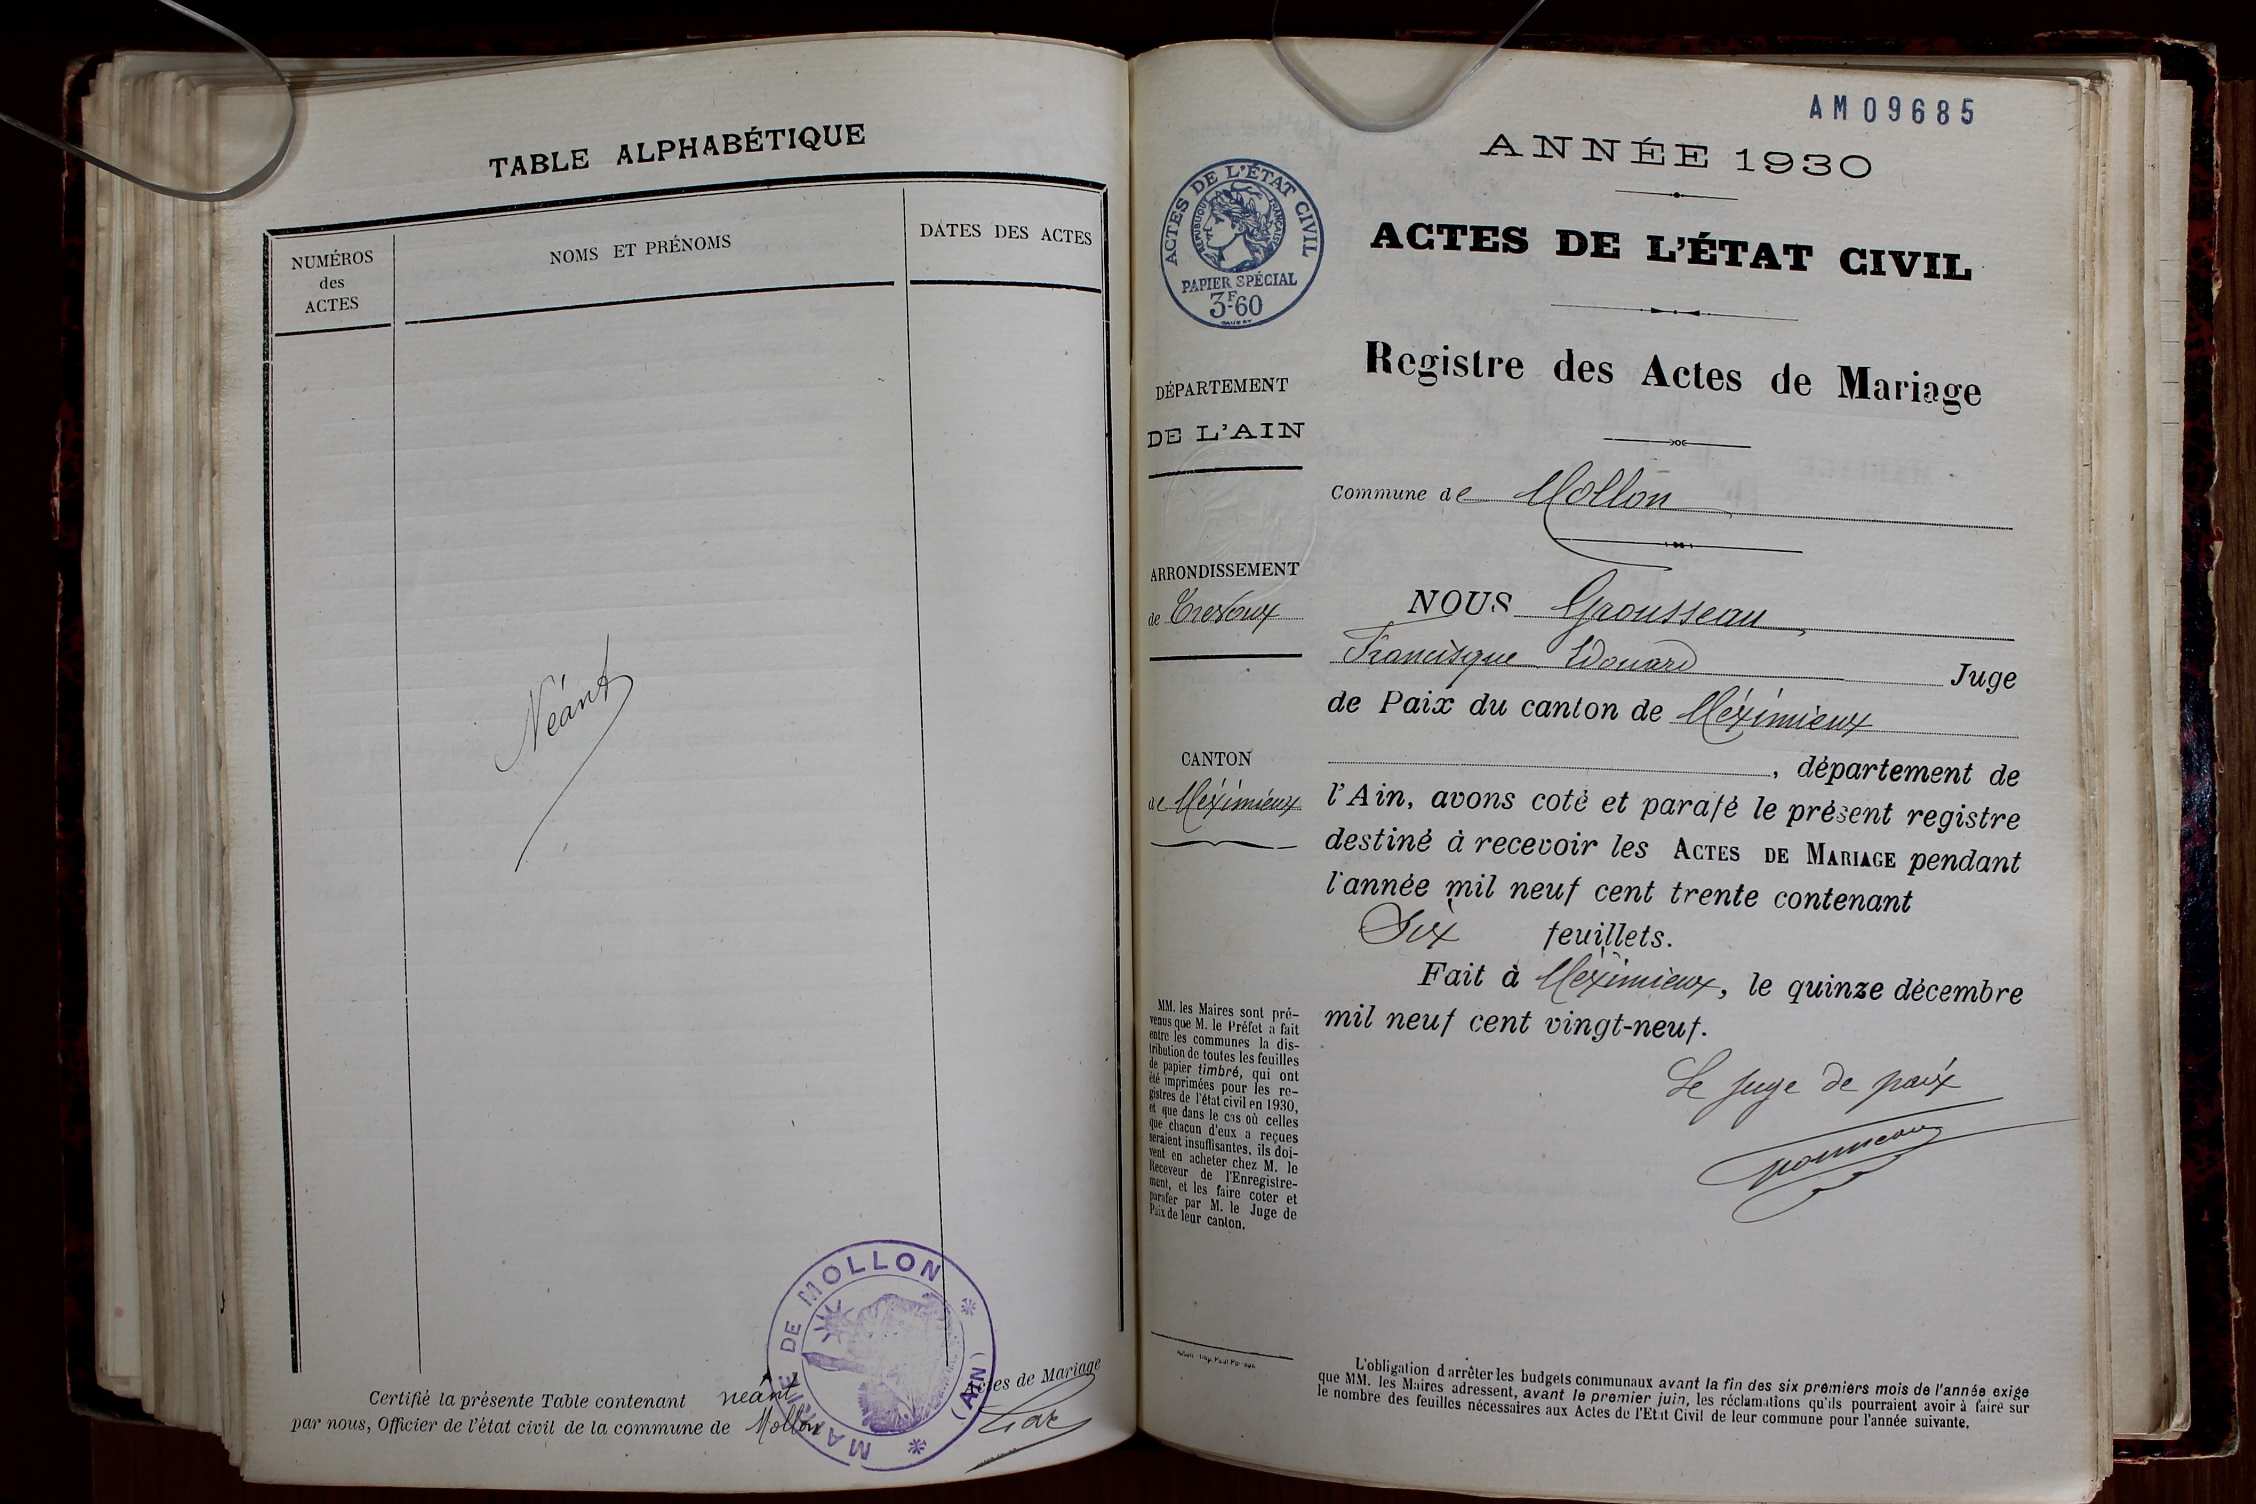 TABLE ALPHABÉTIQUE
NUMÉROS
des
ACTES
NOMS ET PRÉNOMS
DATES DES ACTES
Néant
MAIRIE DE MOLLON
(AIN)
Certifié la présente Table contenant néant Actes de Mariage
par nous, Officier de l'état civil de la commune de Mollon
AM09685
ANNÉE 1930
ACTES DE L'ÉTAT CIVIL
RÉPUBLIQUE FRANÇAISE
PAPIER SPÉCIAL
3F60
ACTES DE L'ÉTAT CIVIL
Registre des Actes de Mariage
DÉPARTEMENT
DE L'AIN
Commune de Mollon
ARRONDISSEMENT
de Trévoux
NOUS Grousseau,
Francisque Edouard Juge
de Paix du canton de Méximieux
CANTON
de Méximieux
, département de
l'Ain, avons coté et parafé le présent registre
destiné à recevoir les ACTES DE MARIAGE pendant
l'année mil neuf cent trente contenant
Six feuillets.
Fait à Méximieux, le quinze décembre
mil neuf cent vingt-neuf.
Le juge de paix
MM. les Maires sont pré-
venus que M. le Préfet a fait
entre les communes la dis-
tribution de toutes les feuilles
de papier timbré, qui ont
été imprimées pour les re-
gistres de l'état civil en 1930,
et que dans le cas où celles
que chacun d'eux a reçues
seraient insuffisantes, ils doi-
vent en acheter chez M. le
Receveur de l'Enregistre-
ment, et les faire coter et
parafer par M. le Juge de
Paix de leur canton.
L'obligation d'arrêter les budgets communaux avant la fin des six premiers mois de l'année exige
que MM. les Maires adressent, avant le premier juin, les réclamations qu'ils pourraient avoir à faire sur
le nombre des feuilles nécessaires aux Actes de l'Etat Civil de leur commune pour l'année suivante.